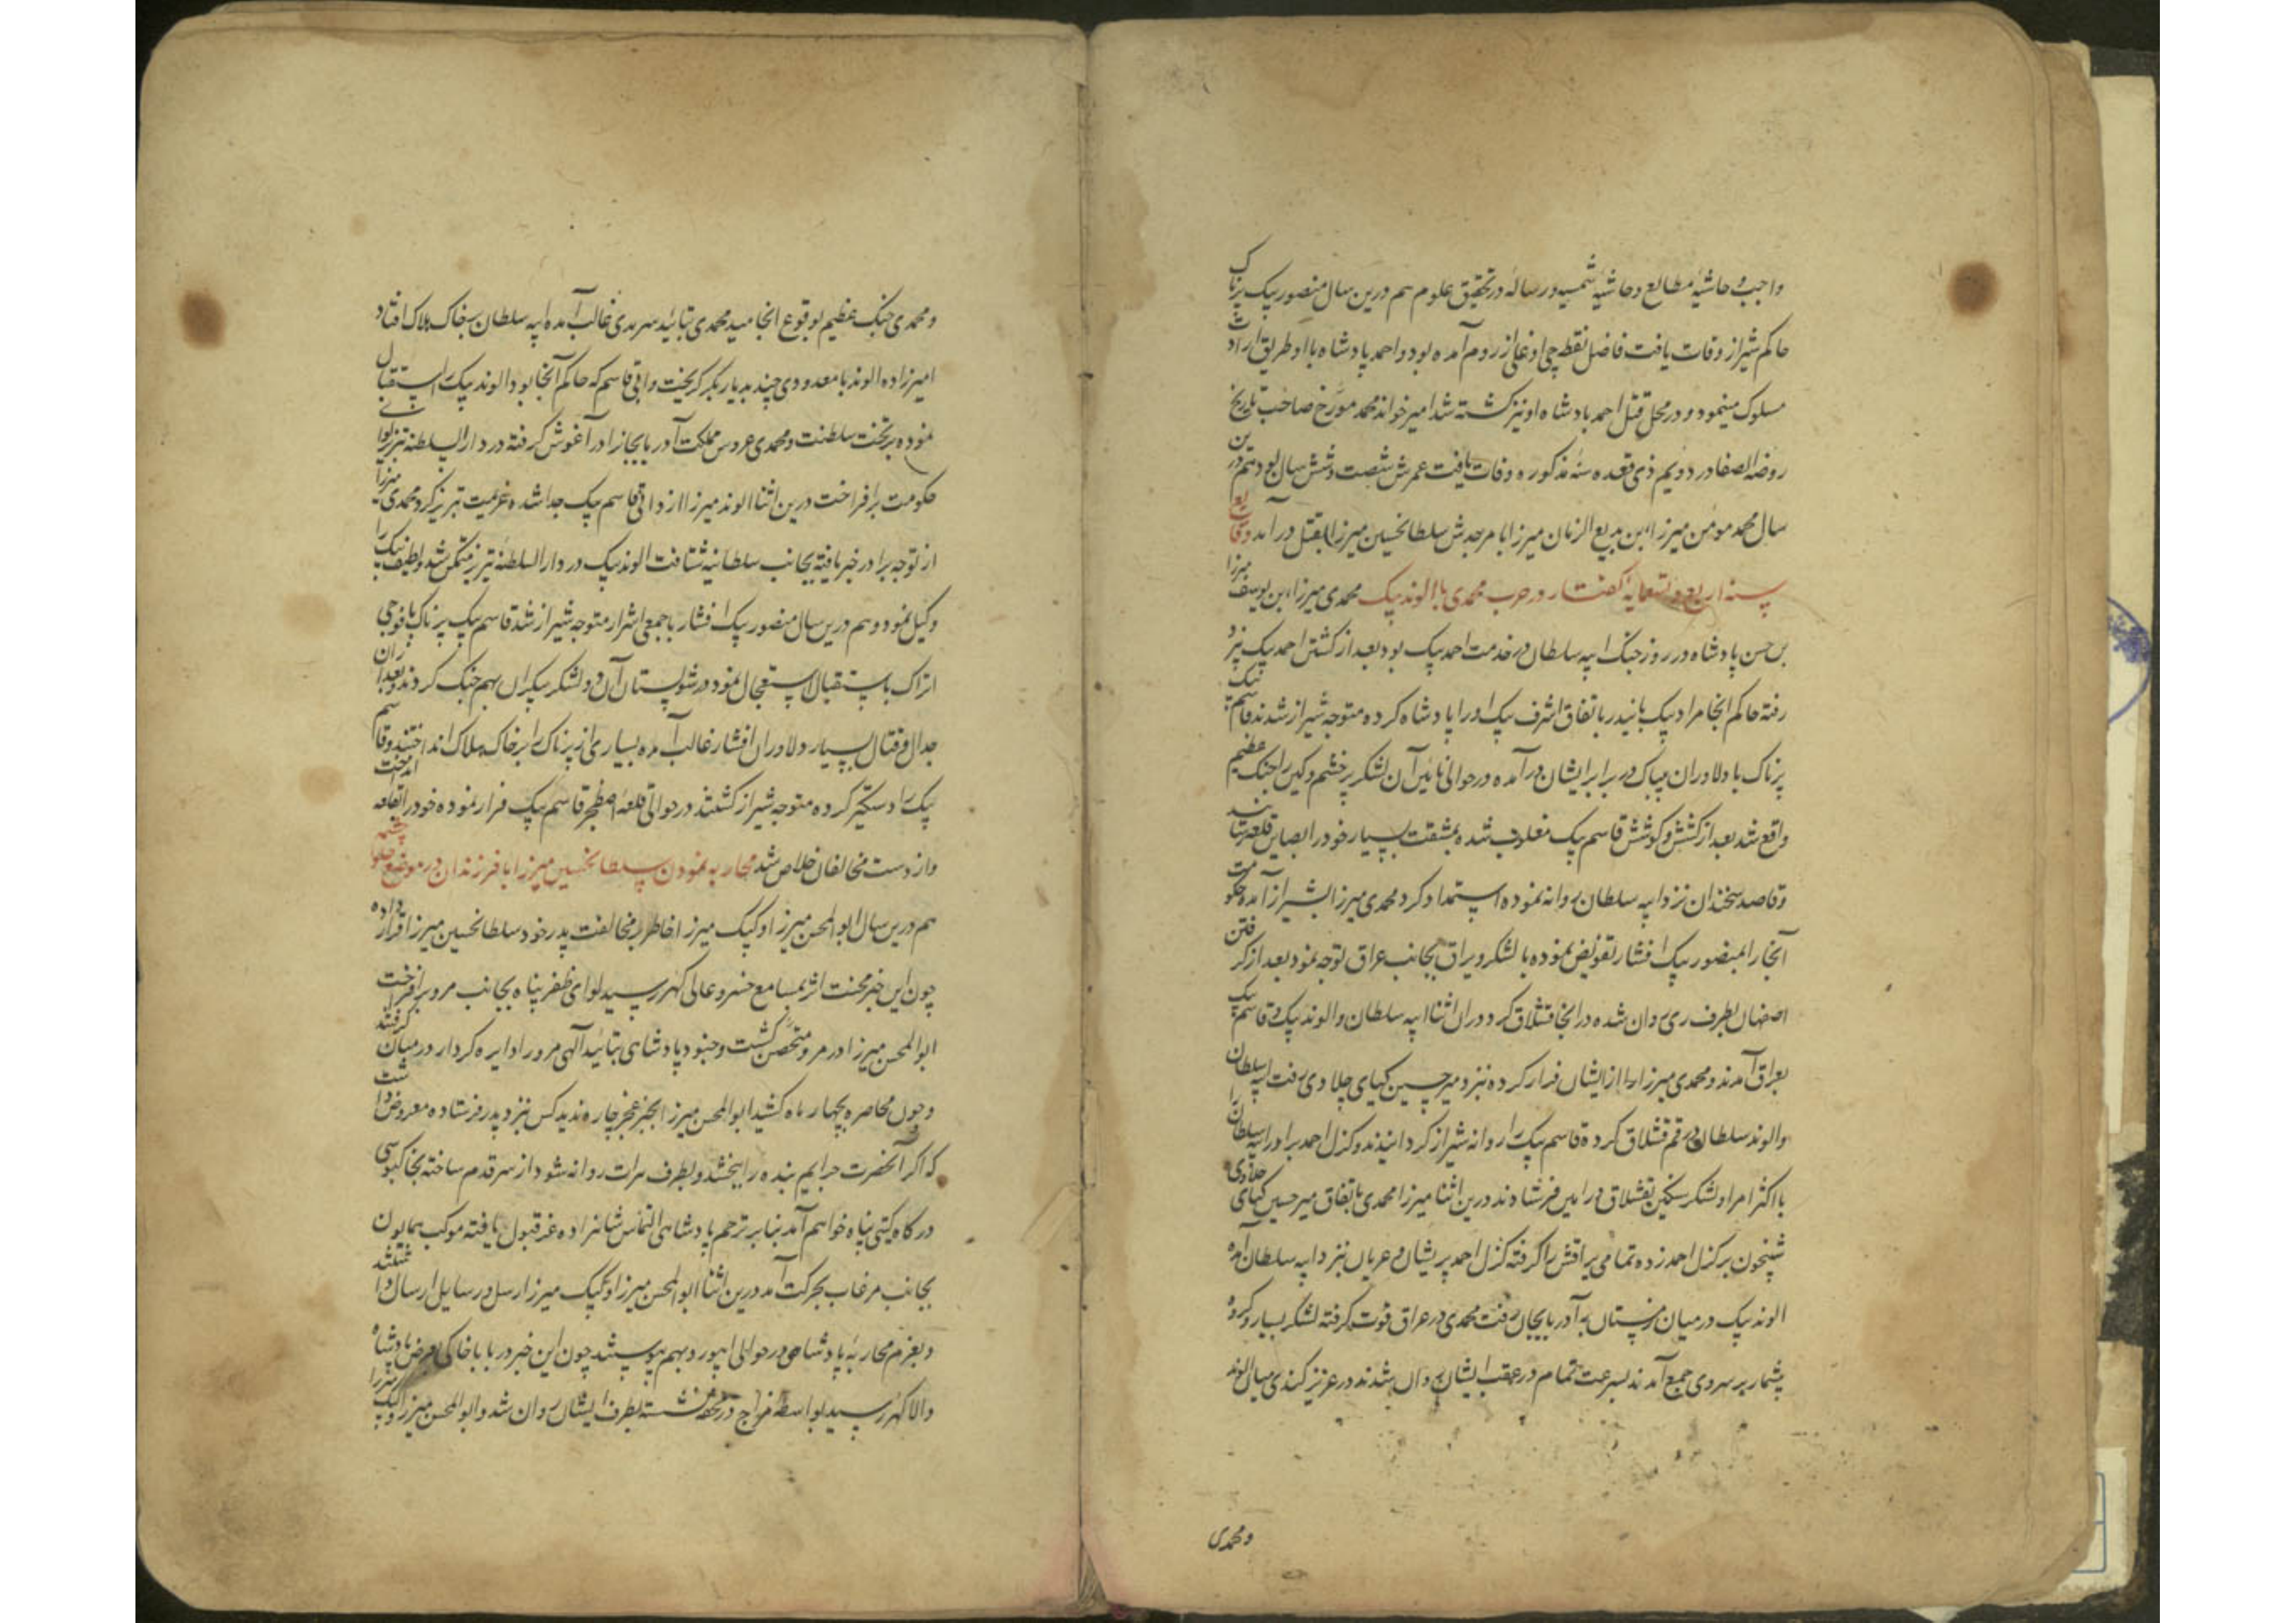 واجب و حاشیهٔ مطالع و حاشیهٔ شمسیه و رساله در تحقیق علوم هم درین سال منصور بیک پرناک
حاکم شیراز وفات یافت فاضل نقطه چی اوغلی از روم آمده بود و احمد پادشاه با او طریق ارادت
مسلوک مینمود و در محل قتل احمد پادشاه او نیز کشته شد امیر خواند محمد مورخ صاحب تاریخ
روضه الصفا در دویم ذی قعده سنه مذکوره وفات یافت عمرش شصت و شش سال بود هم درین
سال محمد مومن میرزا ابن بدیع الزمان میرزا بامر جدش سلطانحسین میرزا بقتل در آمد وقایع
سنه اربع و تسعمایه گفتار در حرب محمدی با الوند بیک محمدی میرزا ابن یوسف میرزا
بن حسن پادشاه در روز جنک ایبه سلطان در خدمت احمد بیک بود بعد از کشتن احمد بیک
رفته حاکم انجا مراد بیک بایندر باتفاق اشرف بیک او را پادشاه کرده متوجه شیراز شدند قاسم بیک
پرناک با دلاوران بیباک در برابر ایشان در آمده در حوالی آن لشکر پر خشم و کین را جنک عظیم
واقع شد بعد از کشش و کوشش قاسم بیک مغلوب شده بمشقت بسیار خود را قلعه
و قاصد سخندان نزد ایبه سلطان روانه نموده استمداد کرد محمدی میرزا بشیراز آمده حکومت
آنجا را بمنصور بیک افشار تفویض نموده با لشکر و یراق بجانب عراق توجه نمود بعد از گرفتن
اصفهان بطرف ری روان شده در انجا قشلاق کرد و در ان اثنا ایبه سلطان و الوند بیک و قاسم بیک
بعراق آمدند و محمدی میرزا از ایشان فرار کرده نزد میر حسین کیای چلاوی رفت ایبه سلطان
و الوند سلطان در قم قشلاق کرده قاسم بیک را روانه شیراز گردانیدند و کزل احمد برادر ایبه سلطان را
با اکثر امرا و لشکر سنکین بقشلاق ورامین فرستادند درین اثنا میرزا محمدی باتفاق میر حسین کیای چلاوی
شبیخون بر کزل احمد زده تمامی یراقش را گرفته کزل احمد پریشان و عریان نزد ایبه سلطان آمده
الوند بیک در میان زمستان به آذربایجان رفت محمدی در عراق قوت گرفته لشکر بسیار و گروه
بیشمار بر سر وی جمع آمدند بسرعت تمام در عقب ایشان روان شدند در عزیز کندی میان الوند
و محمدی
و محمدی جنک عظیم بوقوع انجامید محمدی بتائید سرمدی غالب آمده ایبه سلطان بخاک هلاک افتاد
امیرزاده الوند با معدودی چند بدیار بکر گریخت و قاسم که حاکم آنجا بود الوند بیک را استقبال
نموده بر تخت سلطنت و محمدی عروس مملکت آذربایجان را در آغوش گرفته در دار السلطنه تبریز لوای
حکومت برافراخت درین اثنا الوند میرزا از قاسم بیک جدا شده عزیمت تبریز کرد محمدی میرزا
از توجه برادر خبر یافته بجانب سلطانیه شتافت الوند بیک در دار السلطنه تبریز متمکن شد و لطیف بیک را
وکیل نمود و هم درین سال منصور بیک افشار با جمعی اشرار متوجه شیراز شد قاسم بیک پرناک با فوجی
اتراک باستقبال استعجال نمود در شولستان آن دو لشکر بیکران بهم جنک کردند و بعد از
جدال و قتال بسیار دلاوران افشار غالب آمده بسیاری از پرناک را بر خاک هلاک انداختند و قاسم
بیک را دستگیر کرده متوجه شیراز گشتند در حوالی قلعهٔ اصطخر قاسم بیک فرار نموده خود را بقلعه انداخت
و از دست مخالفان خلاص شد محاربه نمودن سلطانحسین میرزا با فرزندان در موضع حلوا چشمه
هم درین سال ابو المحسن میرزا و کپک میرزا خاطر بمخالفت پدر خود سلطانحسین میرزا قرار داده
چون این خبر محنت اثر بمسامع خسرو عالی گهر رسید لوای ظفر پناه بجانب مرو برافراخت
ابو المحسن میرزا در مرو متحصن گشت و جنود پادشاهی بتائید آلهی مرو را دایره کردار در میان گرفتند
و چون محاصره بچهار ماه کشید ابو المحسن میرزا بجز عجز چاره ندید کس نزد پدر فرستاده معروض داشت
که اگر آنحضرت جرایم بنده را ببخشد و بطرف هرات روانه شود از سر قدم ساخته بخاکبوسی
درگاه گیتی پناه خواهم آمد بنابر ترحم پادشاهی التماس شاهزاده عز قبول یافته موکب همایون
بجانب مرغاب بحرکت آمد درین اثنا ابو المحسن میرزا و کپک میرزا رسل و رسایل ارسال داشتند
و بعزم محاربه پادشاهی در حوالی ابیورد بهم پیوستند چون این خبر در بابا خاکی بعرض پادشاه
والا گهر رسید بواسطه مزاج در محفه نشسته بطرف ایشان روان شد و ابو المحسن میرزا و کپک میرزا